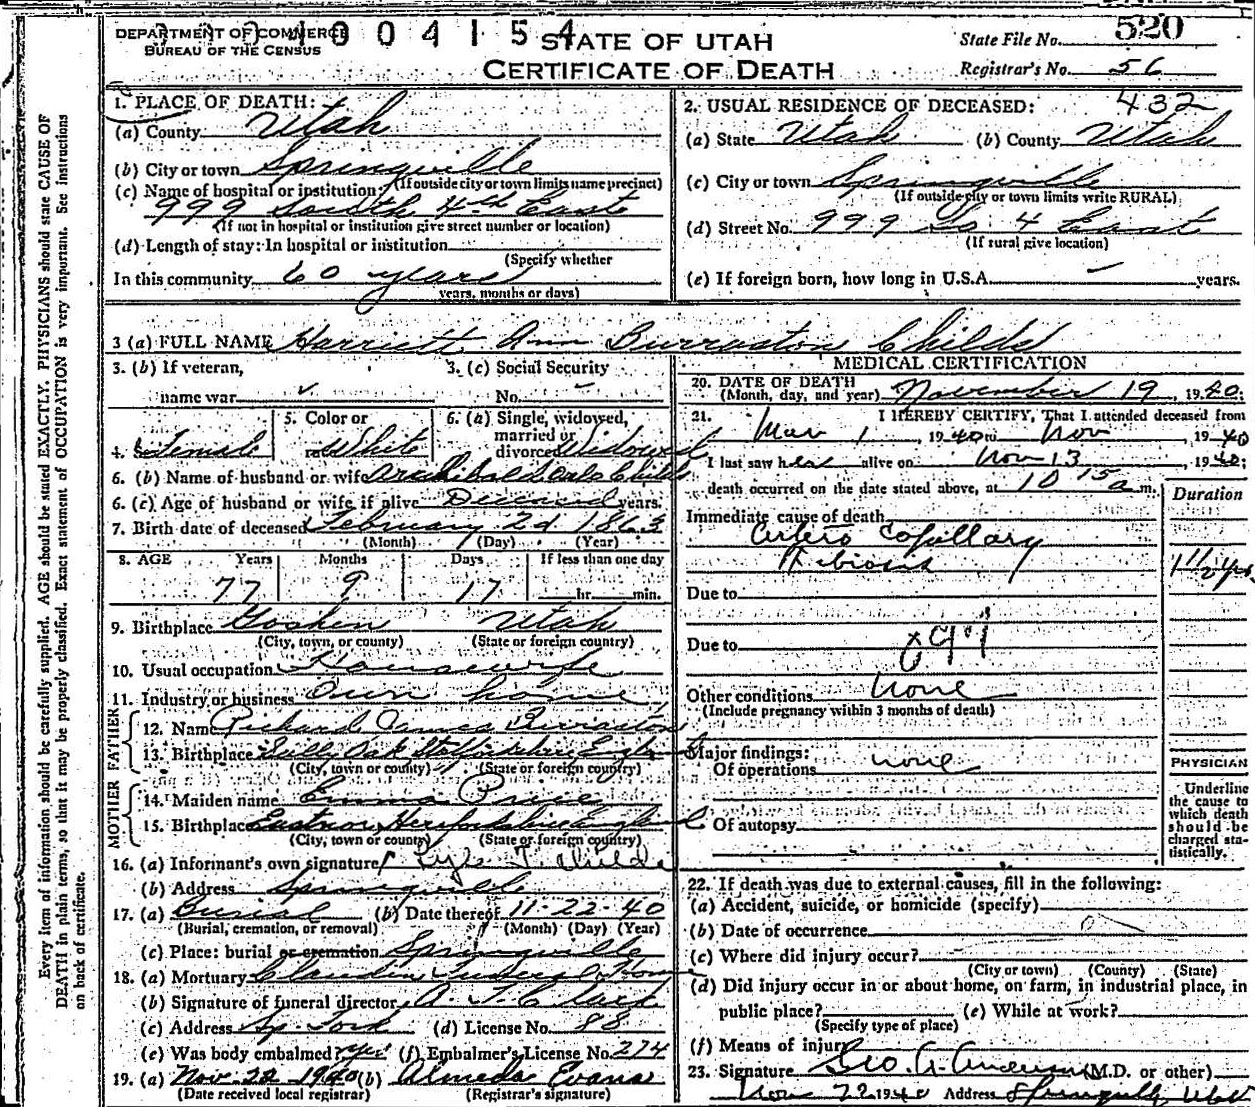 DEPARTMENT OF COMMERCE
BUREAU OF THE CENSUS
004154
STATE OF UTAH
CERTIFICATE OF DEATH
State File No. 520
Registrar's No. 56
Every item of information should be carefully supplied. AGE should be stated EXACTLY. PHYSICIANS should state CAUSE OF
DEATH in plain terms, so that it may be properly classified. Exact statement of OCCUPATION is very important. See instructions
on back of certificate.
1. PLACE OF DEATH:
(a) County Utah
(b) City or town Springville
(If outside city or town limits name precinct)
(c) Name of hospital or institution:
999 South 4th East
(If not in hospital or institution give street number or location)
(d) Length of stay: In hospital or institution
(Specify whether
In this community 60 years
years, months or days)
2. USUAL RESIDENCE OF DECEASED: 432
(a) State Utah (b) County Utah
(c) City or town Springville
(If outside city or town limits write RURAL)
(d) Street No. 999 So. 4 East
(If rural give location)
(e) If foreign born, how long in U.S.A. years.
3 (a) FULL NAME Harriett Ann Burraston Childs
3. (b) If veteran,
name war
3. (c) Social Security
No.
4. Female
5. Color or
race White
6. (a) Single, widowed,
married or
divorced Widowed
6. (b) Name of husband or wife Archibald Childs
6. (c) Age of husband or wife if alive Deceased years.
7. Birth date of deceased February 2d 1863
(Month) (Day) (Year)
8. AGE Years Months Days If less than one day
77 9 17 hr. min.
9. Birthplace Goshen Utah
(City, town, or county) (State or foreign country)
10. Usual occupation Housewife
11. Industry or business Own home
FATHER
12. Name Richard James Burraston
13. Birthplace Oak Staffordshire England
(City, town or county) (State or foreign country)
MOTHER
14. Maiden name Emma Price
15. Birthplace Eastnor Herefordshire England
(City, town or county) (State or foreign country)
16. (a) Informant's own signature Lyle J. Childs
(b) Address Springville
17. (a) Burial (b) Date thereof 11-22-40
(Burial, cremation, or removal) (Month) (Day) (Year)
(c) Place: burial or cremation Springville
18. (a) Mortuary Claudin Funeral Home
(b) Signature of funeral director
(c) Address Sp. Fork (d) License No. 88
(e) Was body embalmed? yes (f) Embalmer's License No. 274
19. (a) Nov. 22 1940 (b) Almeda Evans
(Date received local registrar) (Registrar's signature)
MEDICAL CERTIFICATION
20. DATE OF DEATH
(Month, day, and year) November 19, 1940.
21. I HEREBY CERTIFY, That I attended deceased from
Mar 1, 1940 to Nov, 1940
I last saw her alive on Nov 13, 1940;
death occurred on the date stated above, at 10 15 a m.
Duration
Immediate cause of death
Arterio Capillary
Fibrosis 1 1/2 yrs
Due to
Due to
Other conditions None
(Include pregnancy within 3 months of death)
Major findings:
Of operations none
Of autopsy
PHYSICIAN
Underline
the cause to
which death
should be
charged sta-
tistically.
22. If death was due to external causes, fill in the following:
(a) Accident, suicide, or homicide (specify)
(b) Date of occurrence
(c) Where did injury occur?
(City or town) (County) (State)
(d) Did injury occur in or about home, on farm, in industrial place, in
public place? (e) While at work?
(Specify type of place)
(f) Means of injury
23. Signature Geo. A. Anderson (M.D. or other)
Nov 22 1940 Address Springville Utah